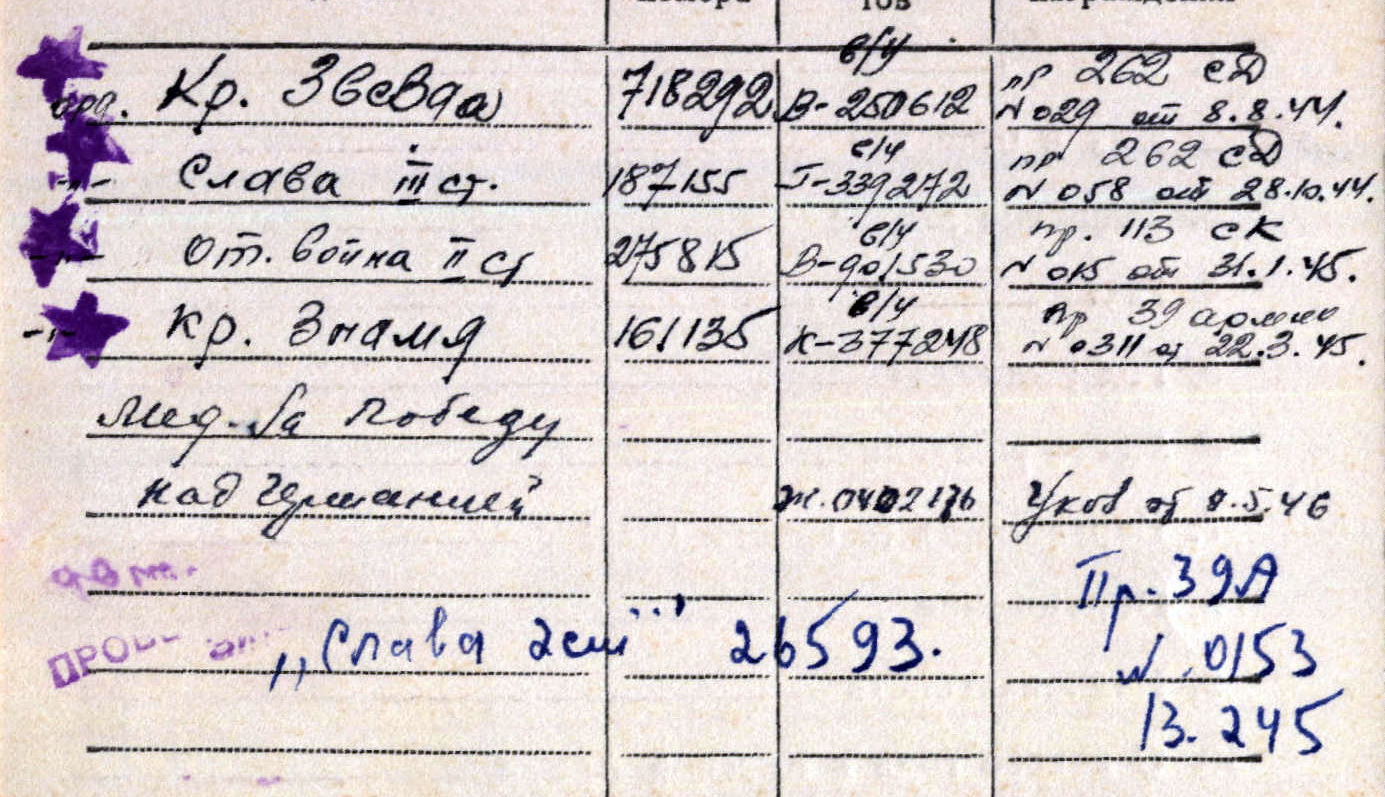 тов
в/у
орд. Кр. Звезда 718292 В-250612 пр 262 сд
№ 029 от 8.8.44.
в/у пр 262 сд
-"- Слава III ст. 187155 Г-339272 № 058 от 28.10.44.
в/у пр. 113 ск
-"- От. война II ст 275815 В-901530 № 015 от 31.1.45.
в/у пр 39 армии
-"- Кр. Знамя 161135 К-377248 № 0311 от 22.3.45.
Мед. За Победу
над Германией Ж.0402176 Указ от 9.5.46
Пр. 39А
„Слава 2 ст" 26593. № 0153
13.245